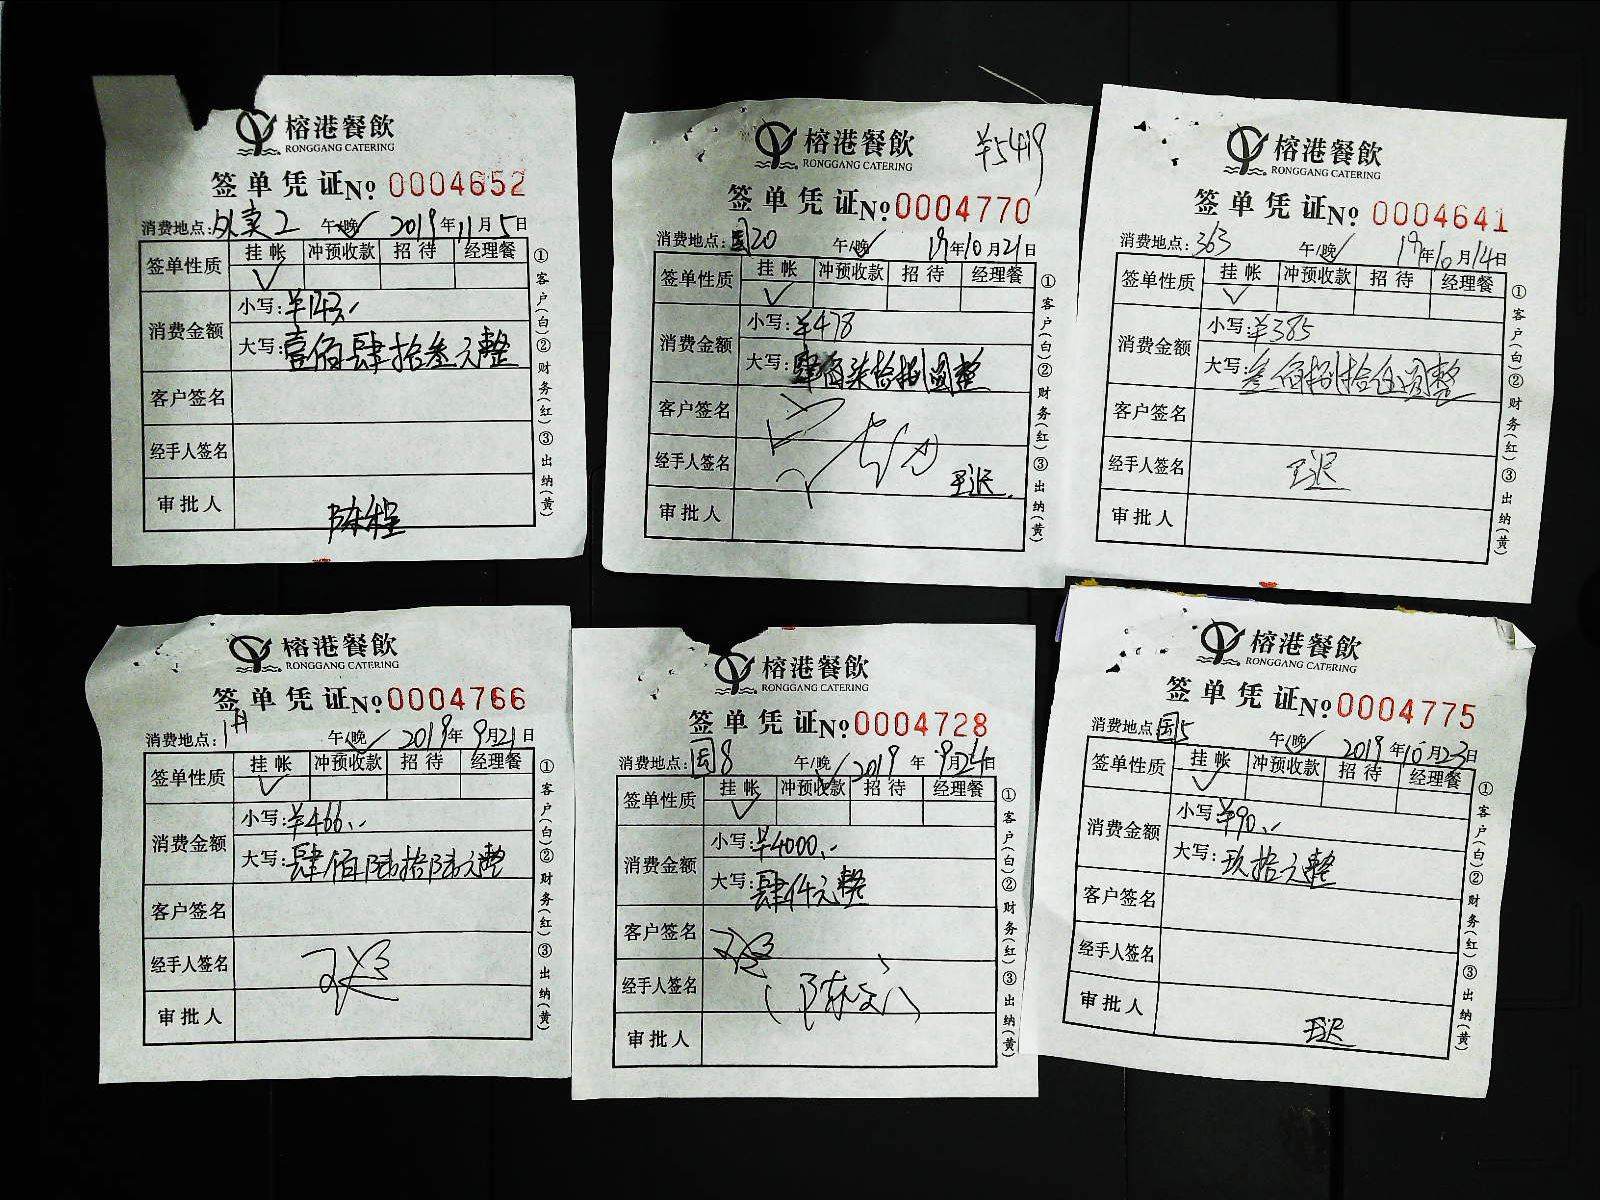 榕港餐飲
RONGGANG CATERING
签单凭证№ 0004652
消费地点: 外卖2 午/晚✓ 2019年11月5日
签单性质 挂帐 冲预收款 招待 经理餐
✓
消费金额 小写: ¥143.-
大写: 壹佰肆拾叁元整
客户签名
经手人签名
审批人 陈程
①客户(白)②财务(红)③出纳(黄)
榕港餐飲
RONGGANG CATERING
¥5419
签单凭证№ 0004770
消费地点: 国20 午/晚✓ 19年10月21日
签单性质 挂帐 冲预收款 招待 经理餐
✓
消费金额 小写: ¥478
大写: 肆佰柒拾捌圆整
客户签名
经手人签名 王迟
审批人
①客户(白)②财务(红)③出纳(黄)
榕港餐飲
RONGGANG CATERING
签单凭证№ 0004641
消费地点: 363 午/晚✓ 19年10月14日
签单性质 挂帐 冲预收款 招待 经理餐
✓
消费金额 小写: ¥385
大写: 叁佰捌拾伍圆整
客户签名
经手人签名 王迟
审批人
①客户(白)②财务(红)③出纳(黄)
榕港餐飲
RONGGANG CATERING
签单凭证№ 0004766
消费地点: 午/晚✓ 2019年9月21日
签单性质 挂帐 冲预收款 招待 经理餐
✓
消费金额 小写: ¥466.-
大写: 肆佰陆拾陆元整
客户签名
经手人签名
审批人
①客户(白)②财务(红)③出纳(黄)
榕港餐飲
RONGGANG CATERING
签单凭证№ 0004728
消费地点: 国8 午/晚✓ 2019年9月24日
签单性质 挂帐 冲预收款 招待 经理餐
✓
消费金额 小写: ¥4000.-
大写: 肆仟元整
客户签名
经手人签名
审批人
①客户(白)②财务(红)③出纳(黄)
榕港餐飲
RONGGANG CATERING
签单凭证№ 0004775
消费地点: 国5 午/晚✓ 2019年10月23日
签单性质 挂帐 冲预收款 招待 经理餐
✓
消费金额 小写: ¥90.-
大写: 玖拾元整
客户签名
经手人签名
审批人 王迟
①客户(白)②财务(红)③出纳(黄)